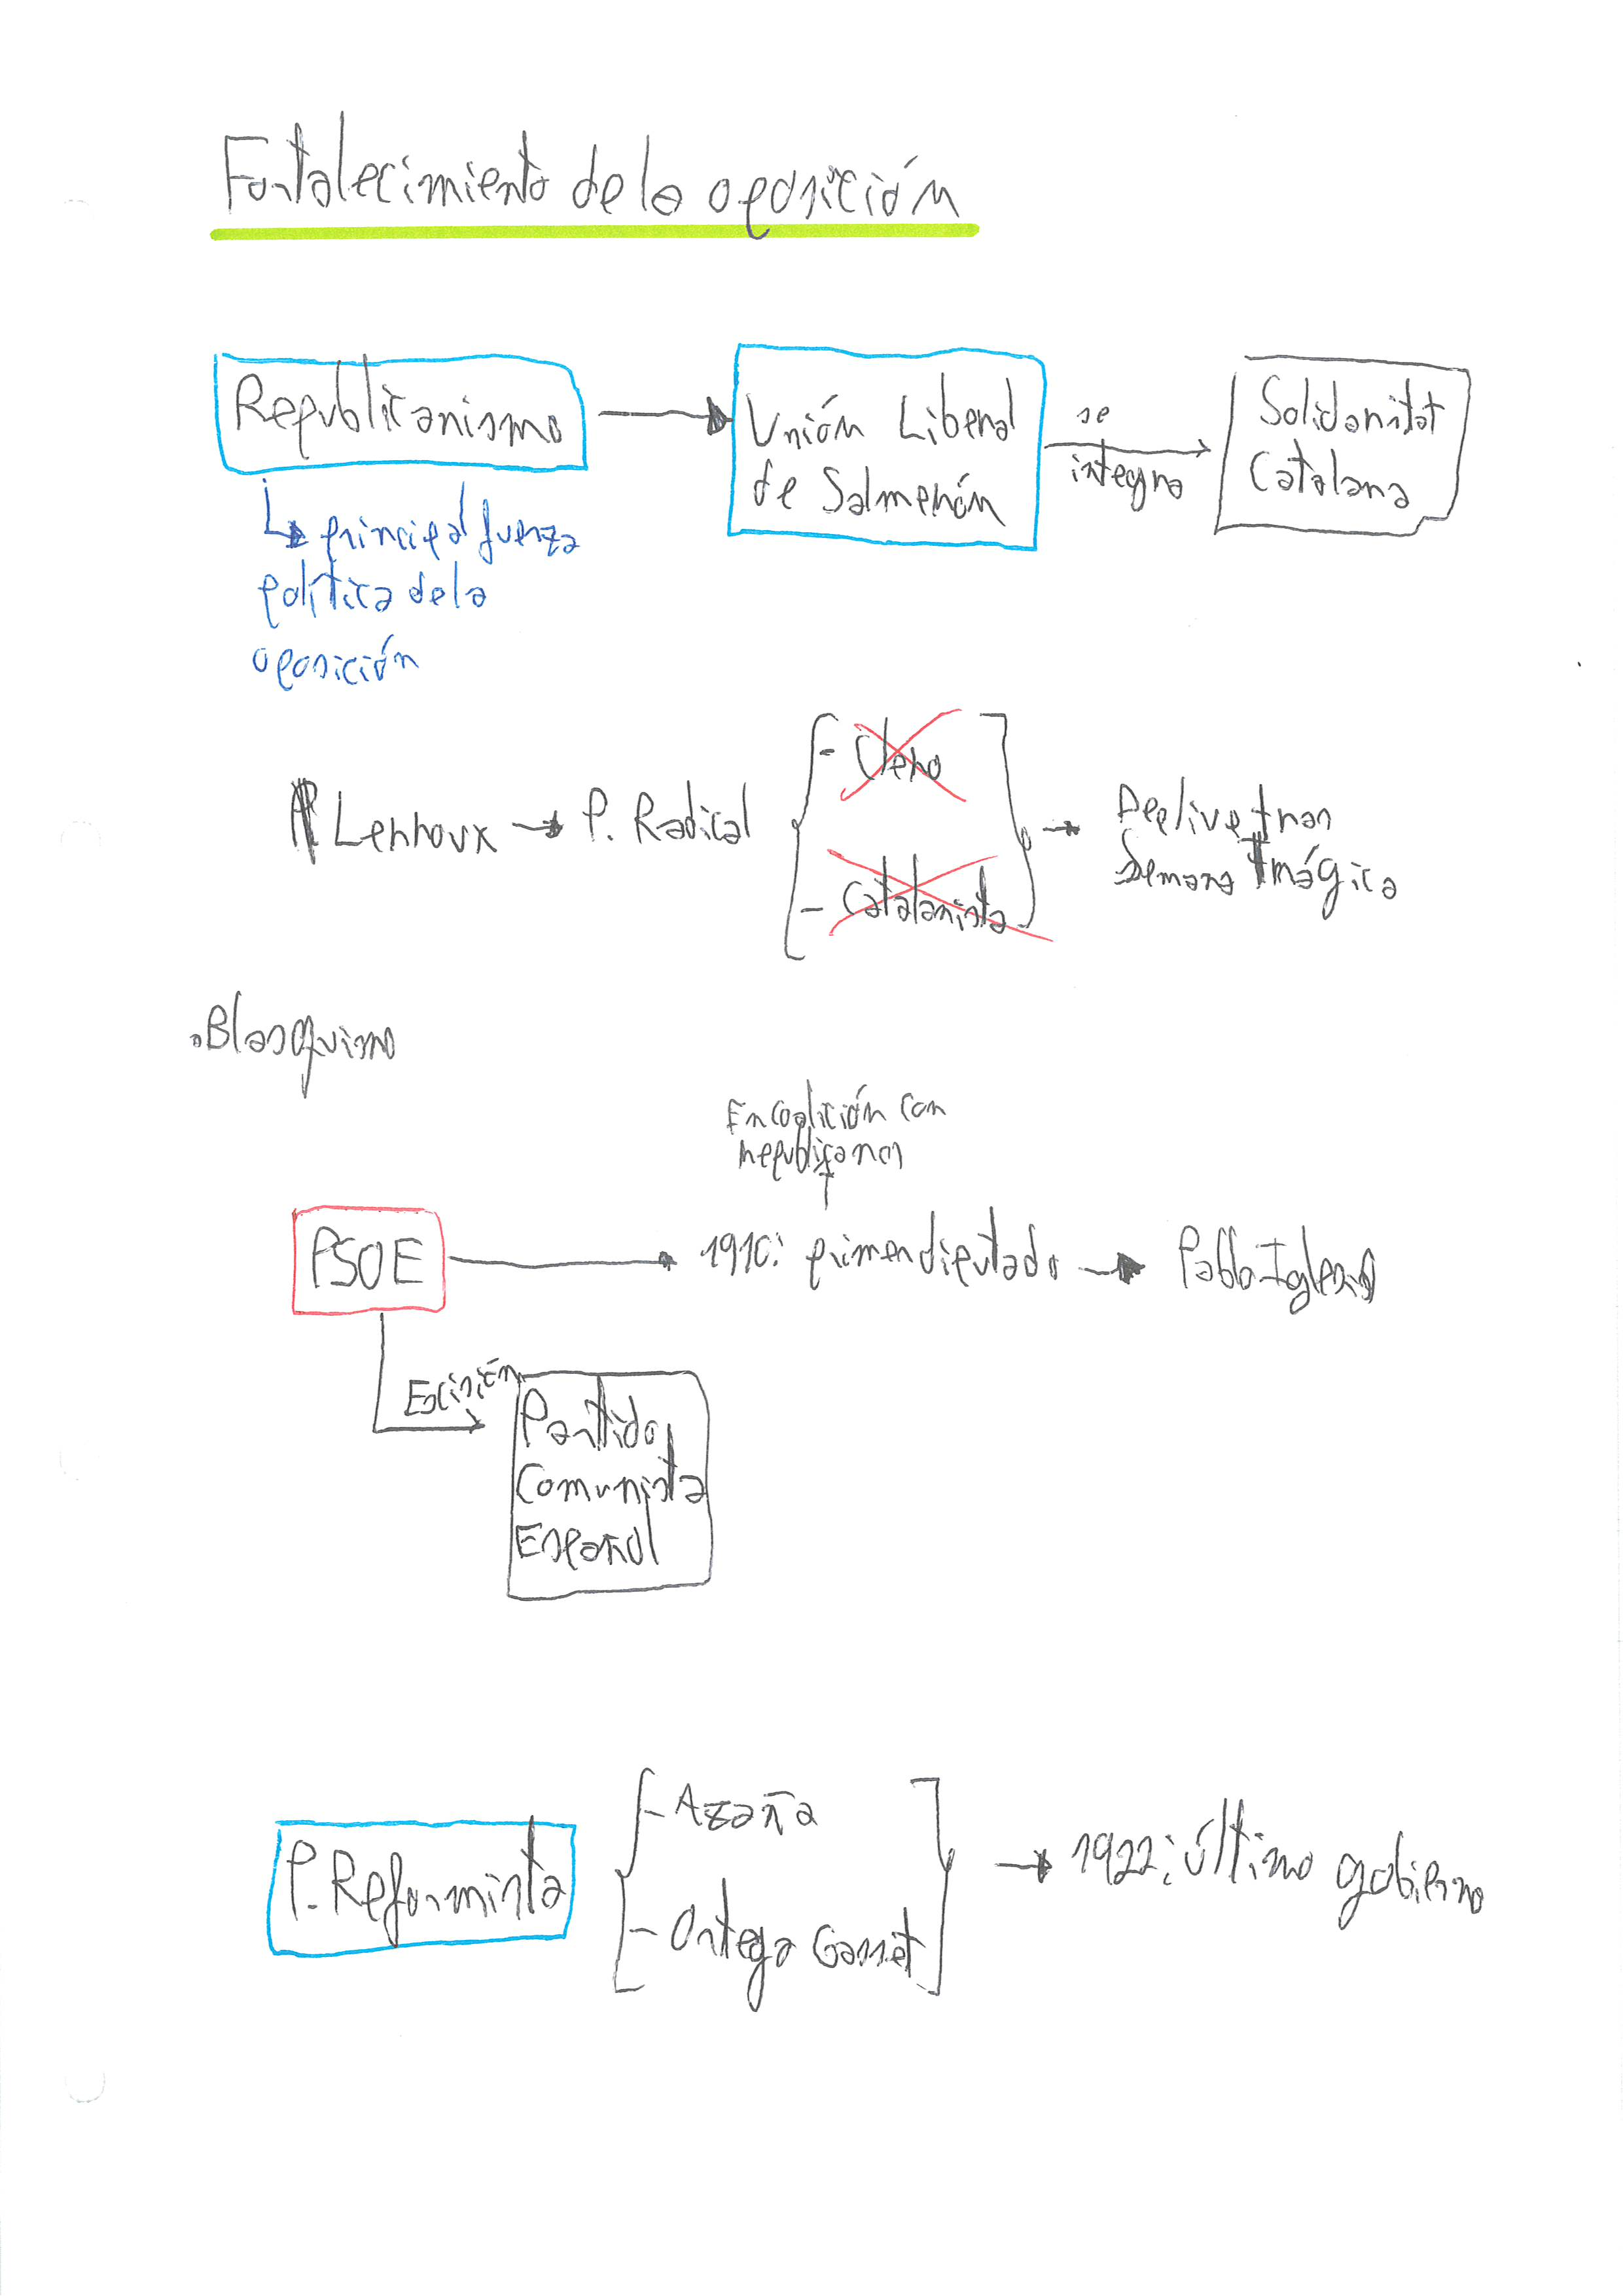 Fortalecimiento de la oposición
Republicanismo
Unión Liberal
de Salmerón
se
integra
Solidaritat
Catalana
principal fuerza
política de la
oposición
Lerroux → P. Radical
- Clero
- Catalanista
→ Declive tras
Semana Trágica
.Blasquismo
En coalición con
republicanos
PSOE
1910: primer diputado → Pablo Iglesias
Escisión
Partido
Comunista
Español
P. Reformista
- Azaña
- Ortega Gasset
→ 1922: último gobierno